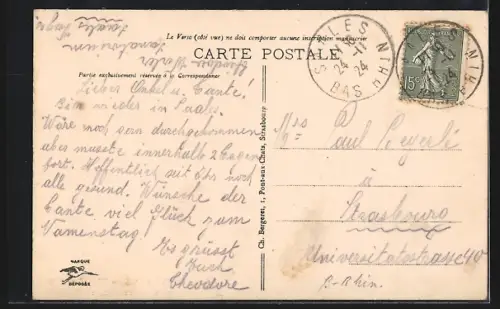 Le Verso (côté vue) ne doit comporter aucune inscription manuscrite
CARTE POSTALE
Partie exclusivement réservée à la Correspondance
Theodor
Sanatorium
Saales
Lieber Onkel u. Tante!
Bin wieder in Saales.
Wäre noch gern durchgekommen
aber musste innerhalb 2 Tagen
fort. Hoffentlich seit Ihr noch
alle gesund. Wünsche der
Tante viel Glück zum
Namenstag!
Es grüsset
Euch
Theodore
MARQUE
DÉPOSÉE
Ch. Bergeret, 1, Pont-aux-Chats, Strasbourg
24 - 11
24
BAS RHIN
15c
Paul
à
Strasbourg
Universitätstrasse 40
B-Rhin.